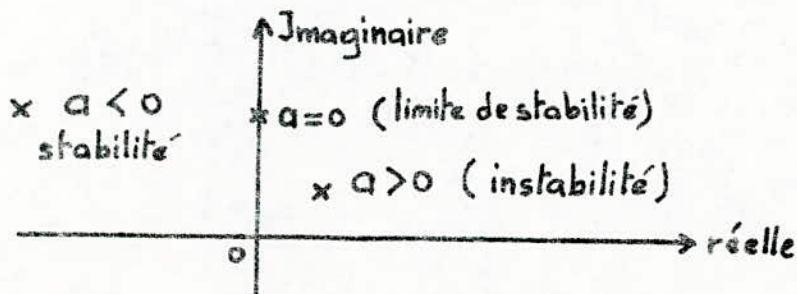 Imaginaire
x a < 0
stabilité
x a = 0 (limite de stabilité)
x a > 0 (instabilité)
réelle
0